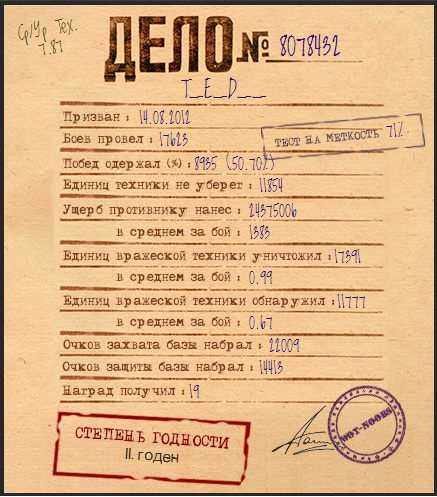 Ср/Ур Тех.
7.87
ДЕЛО № 8078432
T_E_D__
Призван : 14.08.2012
Боев провел : 17623
ТЕСТ НА МЕТКОСТЬ 71%
Побед одержал (%) : 8935 (50.70%)
Единиц техники не уберег : 11854
Ущерб противнику нанес : 24375006
в среднем за бой : 1383
Единиц вражеской техники уничтожил : 17391
в среднем за бой : 0.99
Единиц вражеской техники обнаружил : 11777
в среднем за бой : 0.67
Очков захвата базы набрал : 22009
Очков защиты базы набрал : 14413
Наград получил : 19
СТЕПЕНЬ ГОДНОСТИ
II. годен
WOT-NOOBS